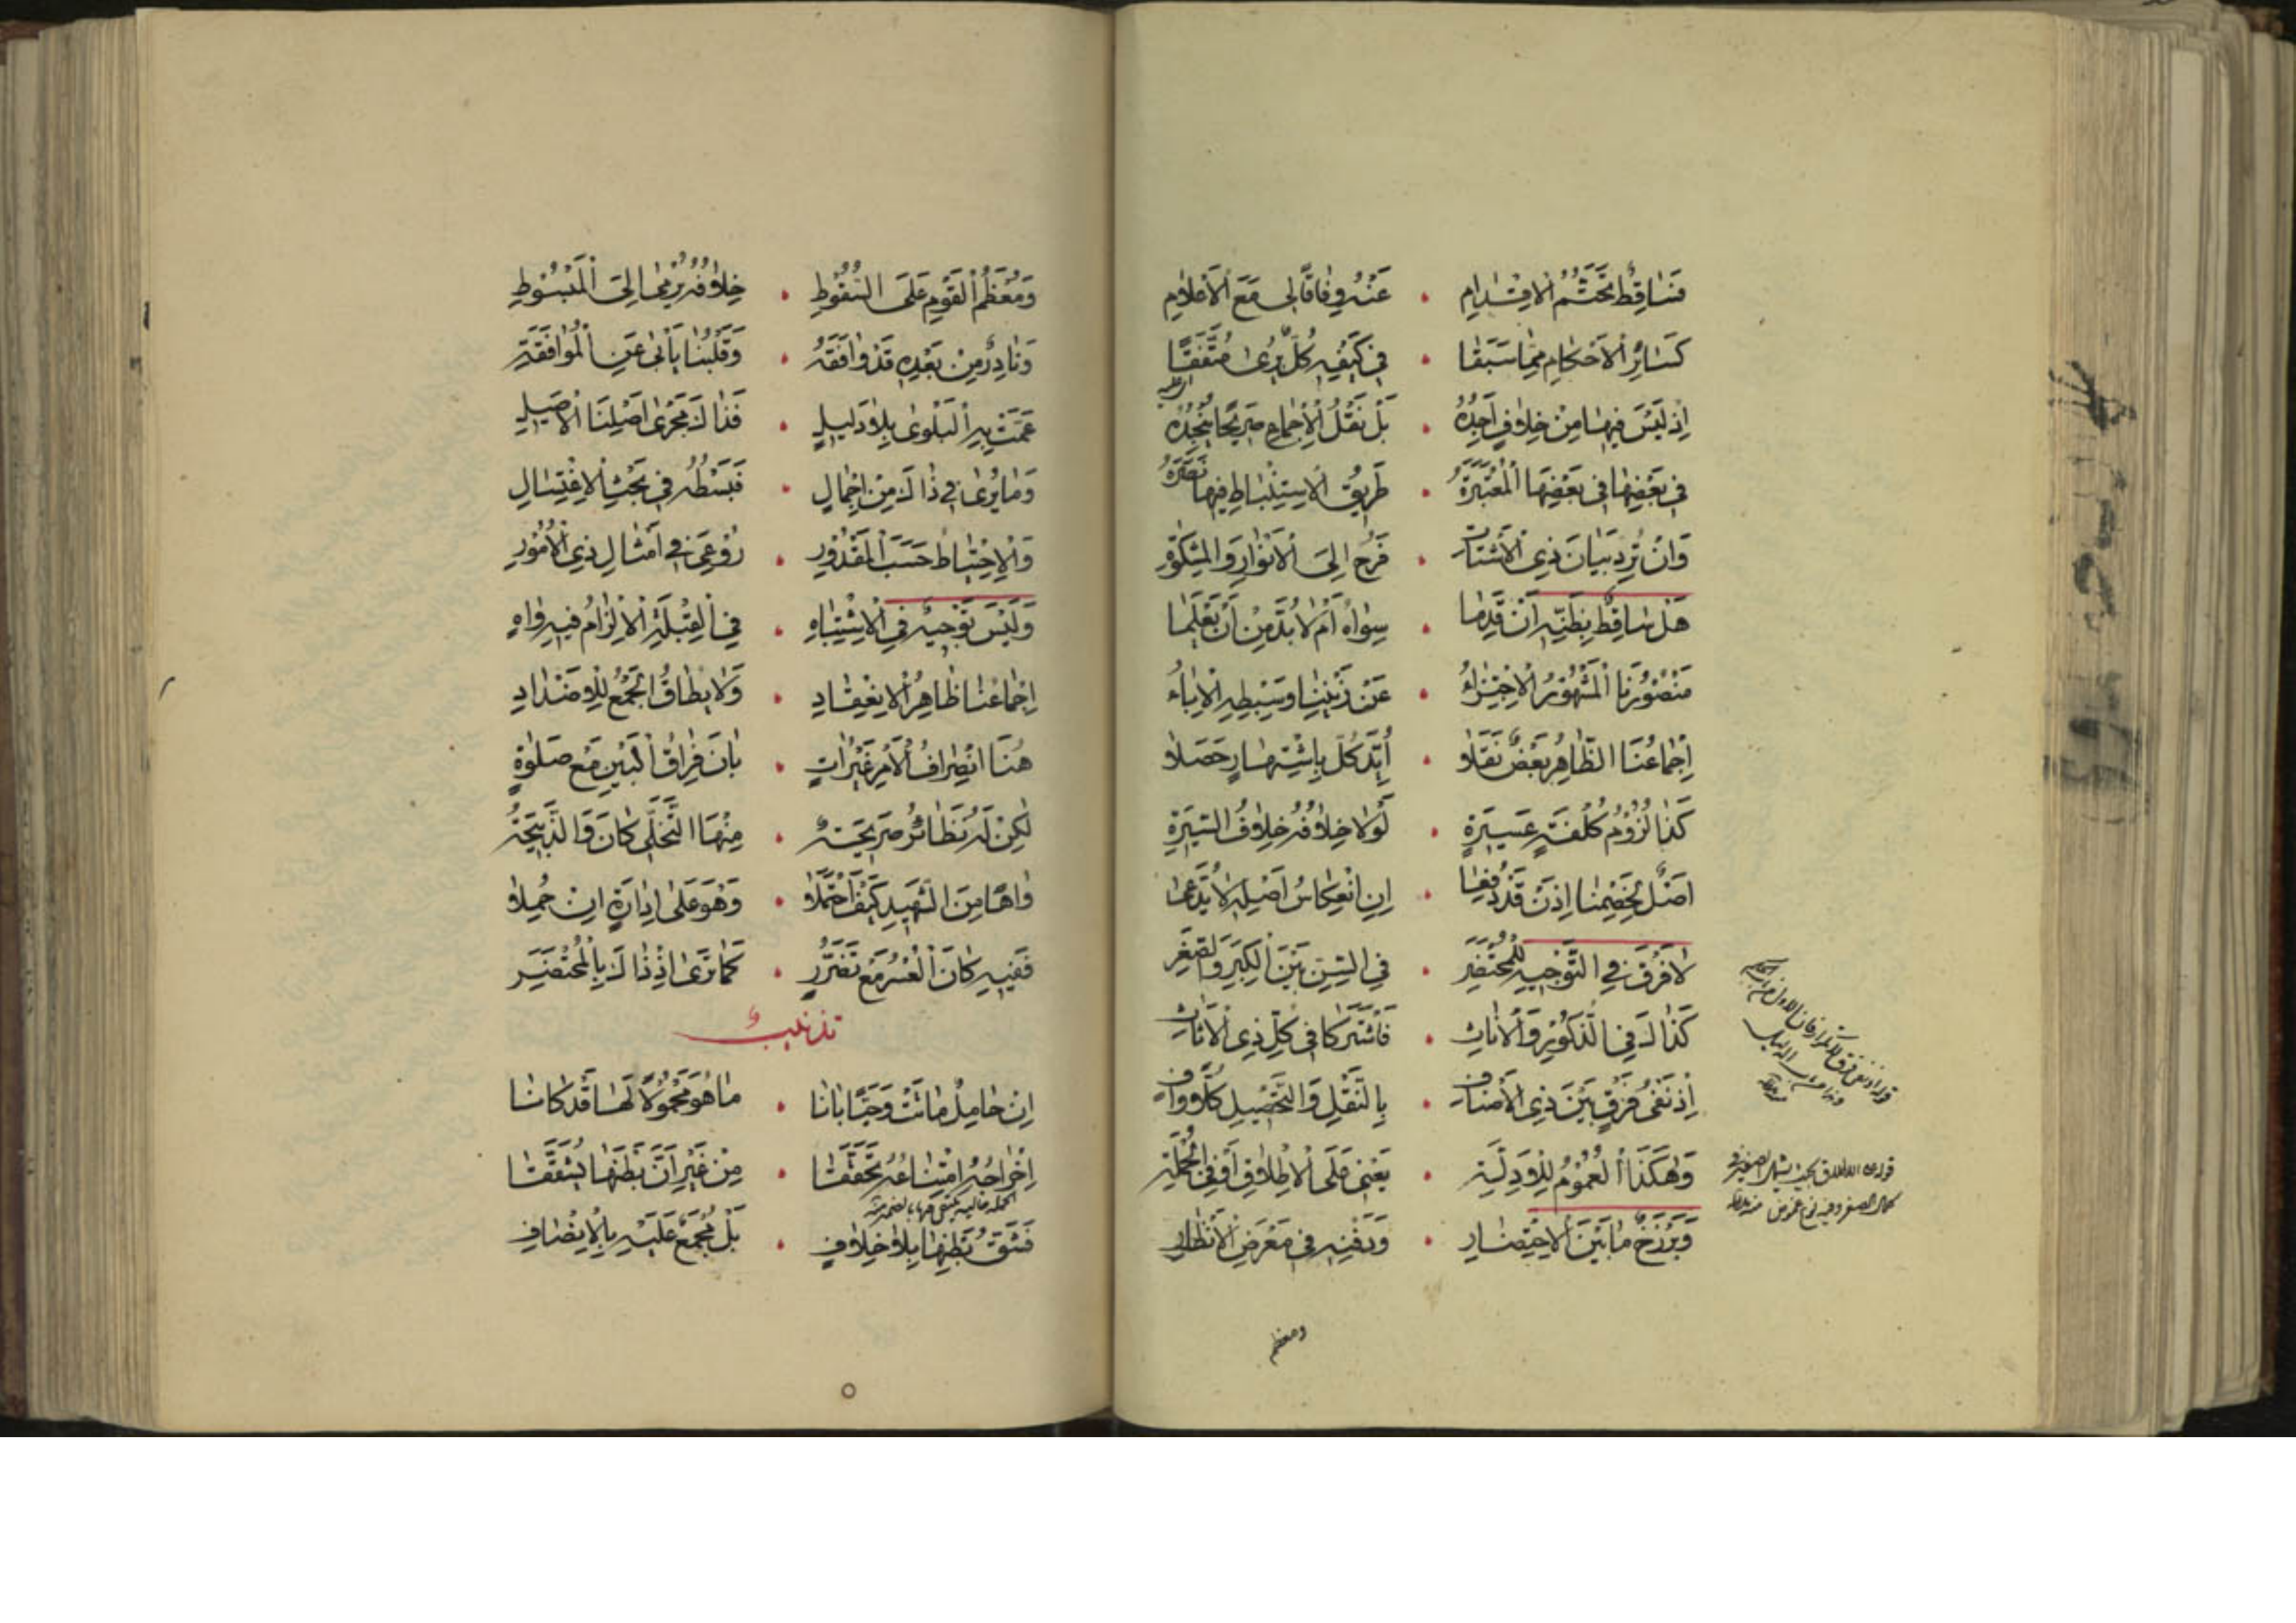 فَسَاقِطٌ تَحَتُّمُ الْاِقْدَامِ • عَنْهُ وِفَاقًا لِي مَعَ الْأَعْلَامِ
كَسَائِرِ الْأَحْكَامِ مِمَّا سَبَقَا • فِي كَيْفِهِ كُلٌّ يُرَى مُتَّفِقًا
إِذْ لَيْسَ فِيهَا مِنْ خِلَافٍ أَجِدُهُ • بَلْ نَقْلُ الْإِجْمَاعِ صَرِيحًا يُنْجِدُهُ
فِي بَعْضِهَا فِي بَعْضِهَا الْمُعْتَبَرَةُ • طَرِيقُ الْاِسْتِنْبَاطِ فِيهَا
وَإِنْ تُرِدْ بَيَانَ ذِي الْأَشْتَاتِ • فَرُحْ إِلَى الْأَنْوَارِ وَالْمِشْكٰوةِ
هَلْ سَاقِطٌ بِظَنِّهِ أَنْ قَدِمَا • سِوَاهُ أَمْ لَا بُدَّ مِنْ أَنْ يَعْلَمَا
مَنْصُورُنَا الْمَشْهُورُ الْاِجْتِزَاءُ • عَنْ وَسِبْطِهِ الْإِبَاءُ
إِجْمَاعُنَا الظَّاهِرُ بَعْضٌ نَقَلَا • أُيِّدَ كُلٌّ بِاشْتِهَارٍ حَصَلَا
كَذَا لُزُومُ كُلْفَةٍ عَسِيرَةٍ • لَوْلَا خِلَافُهُ خِلَافُ السِّيرَةِ
أَصْلٌ لِخَصْمِنَا إِذَنْ قَدْ دُفِعَا • إِنِ انْعِكَاسُ أَصْلِهِ لَا يُدَّعَى
لَا فَرْقَ فِي التَّوْجِيهِ لِلْمُحْتَضَرِ • فِي السِّنِّ بَيْنَ الْكِبَرِ وَالصِّغَرِ
كَذَاكَ فِي الذُّكُورِ وَالْإِنَاثِ • فَاشْتَرَكَا فِي كُلِّ ذِي الْأَثَاثِ
إِذْ نَفْيُ فَرْقٍ بَيْنَ ذِي الْأَصْنَافِ • بِالنَّقْلِ وَالتَّحْصِيلِ كُلٌّ وَافِ
وَهٰكَذَا الْعُمُومُ لِلْأَدِلَّةِ • يَعْنِي عَلَى الْإِطْلَاقِ أَوْ فِي الْجُمْلَةِ
وَبَرْزَخٌ مَا بَيْنَ الْاِحْتِضَارِ • وَدَفْنِهِ فِي مَعْرَضِ الْأَنْظَارِ
ومعظم
وَمُعْظَمُ الْقَوْمِ عَلَى السُّقُوطِ • خِلَافُهُ يُرْمَى إِلَى الْمَبْسُوطِ
وَنَادِرٌ مِنْ بَعْدِهِ قَدْ وَافَقَهُ • وَقَلْبُنَا يَأْبَى عَنِ الْمُوَافَقَةِ
عَمَّتْ بِهِ الْبَلْوَى بِلَا دَلِيلٍ • فَذَاكَ مَجْرَى أَصْلِنَا الْأَصِيلِ
وَمَا يُرَى فِي ذَاكَ مِنْ إِجْمَالٍ • فَبَسْطُهُ فِي بَحْثِ الْاِغْتِسَالِ
وَالْاِحْتِيَاطُ حَسَبَ الْمَقْدُورِ • رُوعِيَ فِي أَمْثَالِ ذِي الْأُمُورِ
وَلَيْسَ تَوْجِيهٌ فِي الْاِشْتِبَاهِ • فِي الْقِبْلَةِ الْإِلْزَامُ فِيهِ وَاهٍ
إِجْمَاعُنَا ظَاهِرُ الْاِنْعِقَادِ • وَلَا يُطَاقُ الْجَمْعُ لِلْأَضْدَادِ
هُنَا انْصِرَافُ الْأَمْرِ غَيْرُ آتٍ • بَانَ فِرَاقُ الْبَيْنِ مَعْ صَلٰوةٍ
لٰكِنْ لَهُ نَظَائِرٌ صَرِيحَةٌ • مِنْهَا التَّخَلِّي كَانَ وَالذَّبِيحَةُ
وَاهًا مِنَ الشَّهِيدِ كَيْفَ احْتَمَلَا • وَهُوَ عَلَى إِدَارَةٍ إِنْ حُمِلَا
فَفِيهِ كَانَ الْعُسْرُ مَعْ تَضَرُّرٍ • كَمَا تَرَى إِذْ ذَاكَ بِالْمُحْتَضَرِ
تذنيب
إِنْ حَامِلٌ مَاتَتْ وَحَيًّا بَانَا • مَا هُوَ مَحْمُولًا لَهَا قَدْ كَانَا
إِخْرَاجُهُ امْتِنَاعُهُ تَحَقَّقَا • مِنْ غَيْرِ أَنَّ بَطْنَهَا يُشَقَّقَا
فَشَقُّ بَطْنِهَا بِلَا خِلَافٍ • بَلْ مُجْمَعٌ عَلَيْهِ بِالْإِنْصَافِ